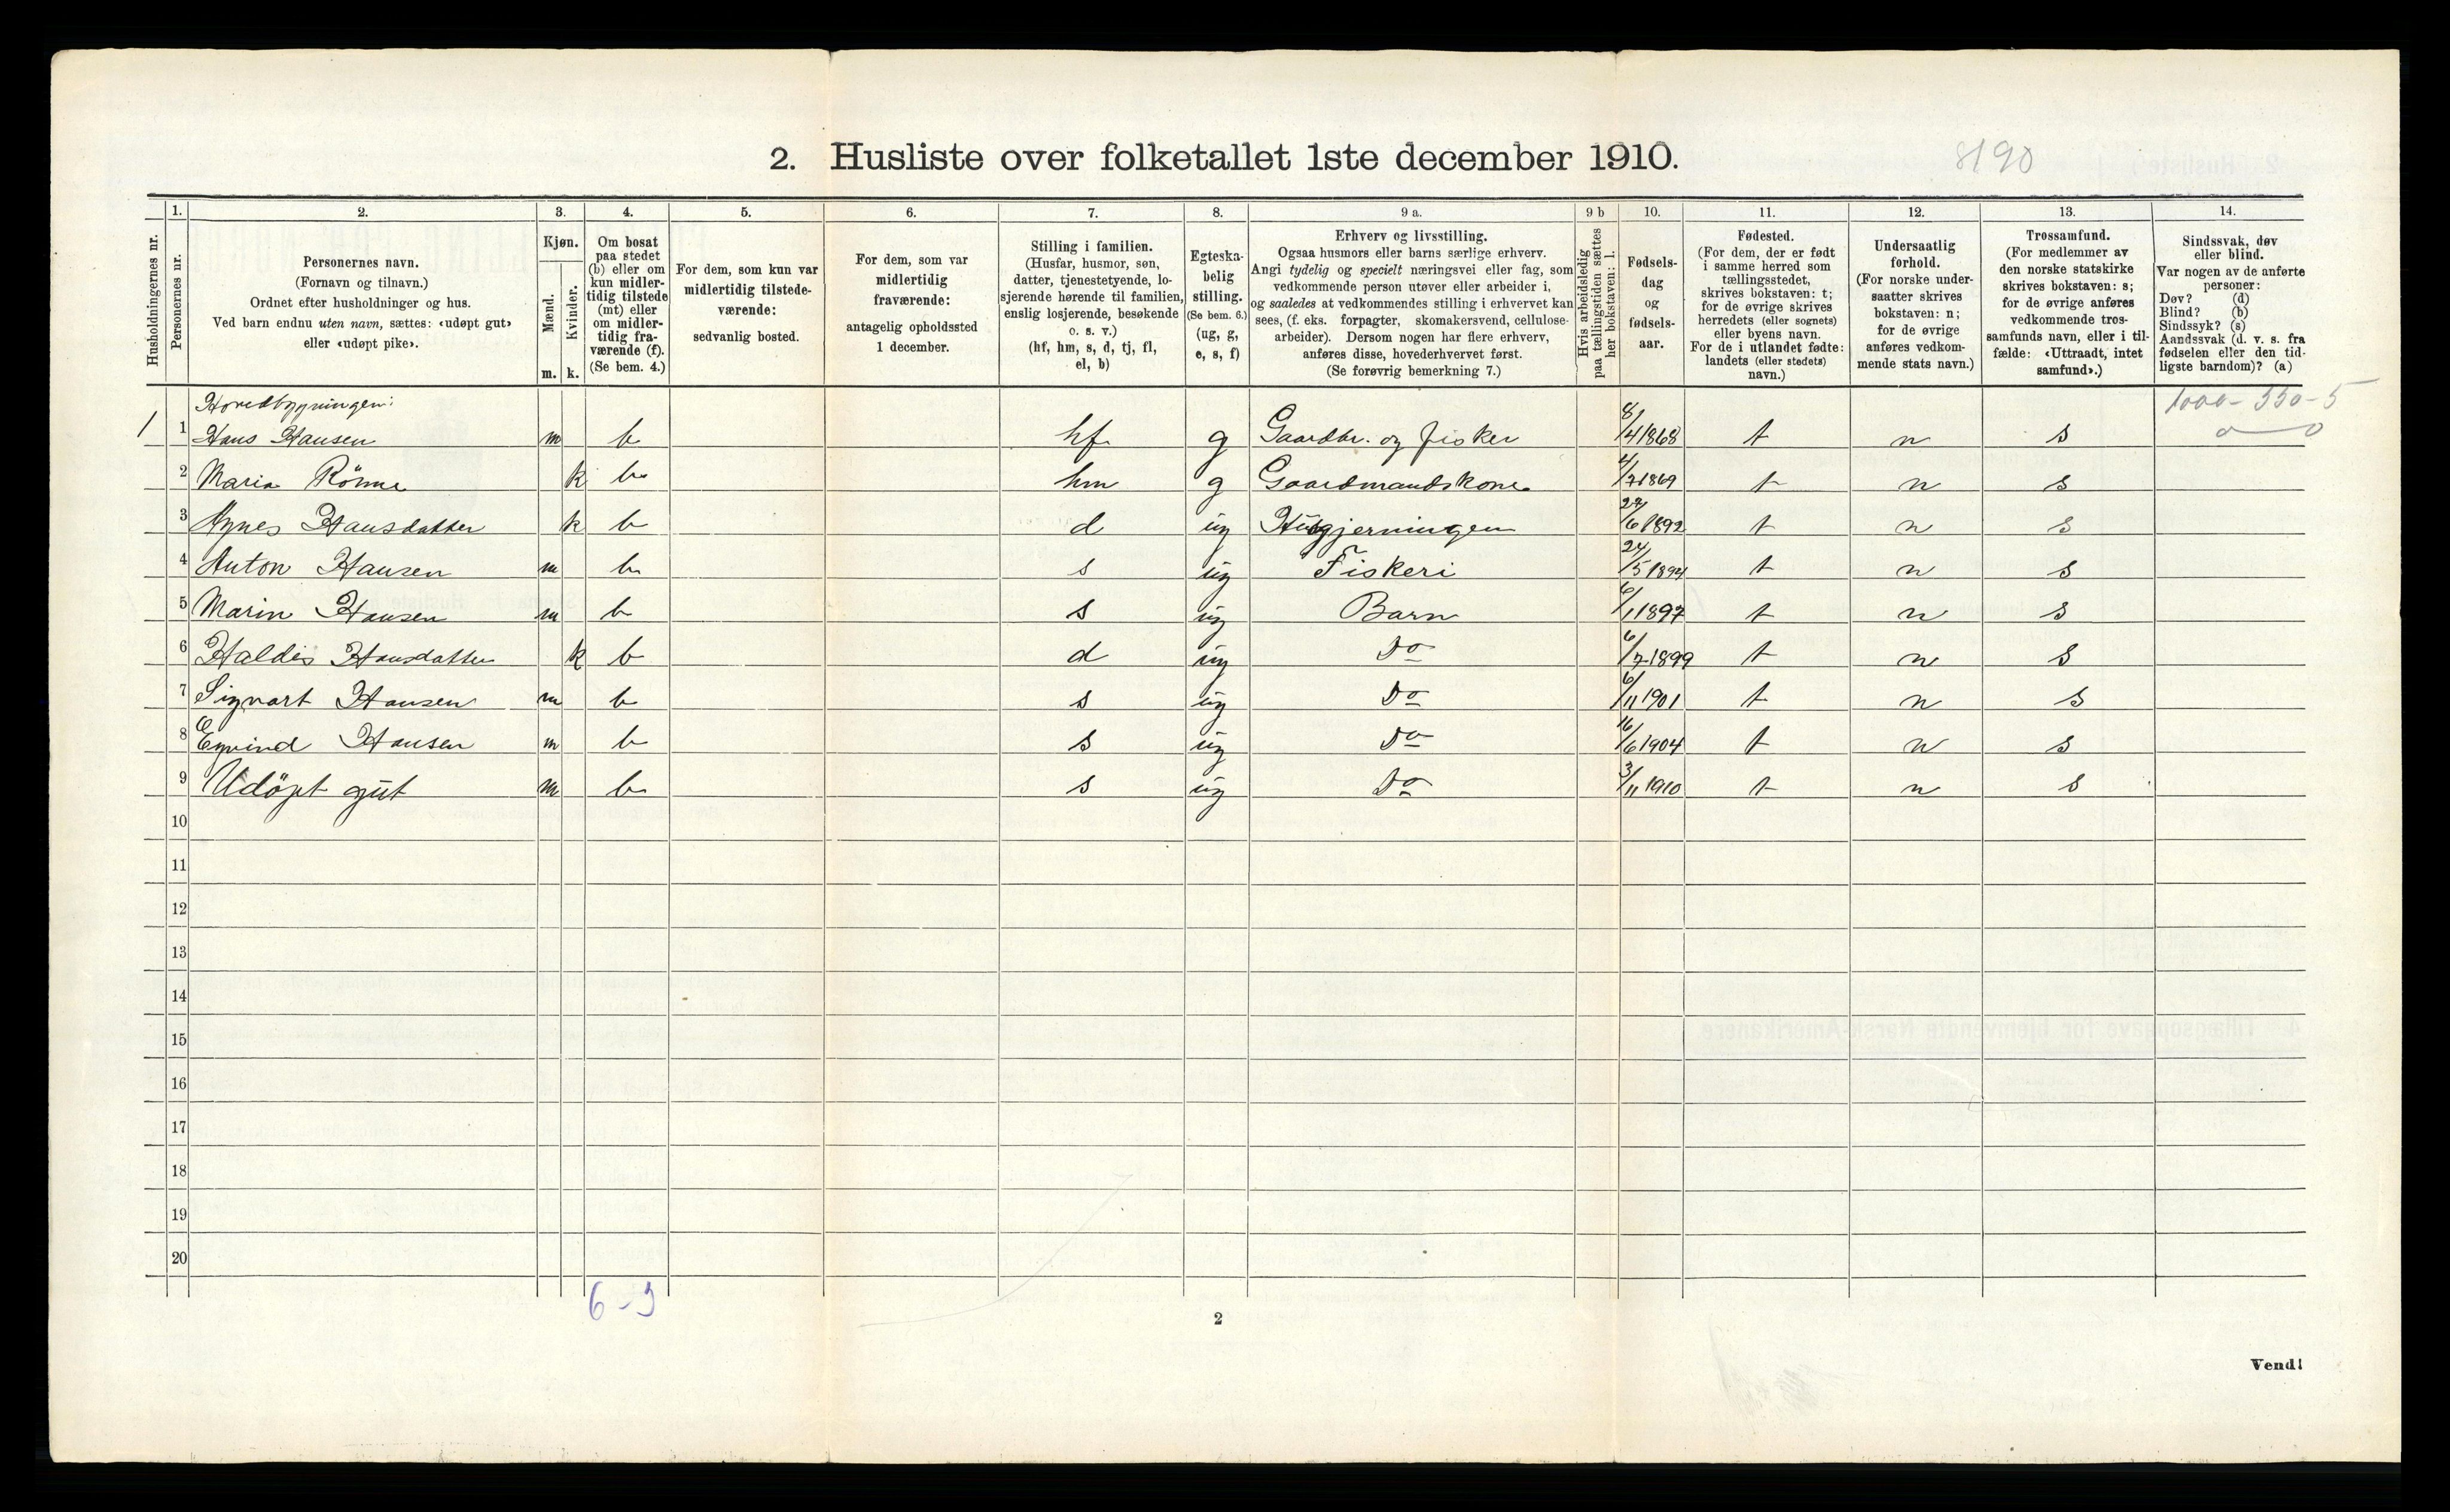 2. Husliste over folketallet 1ste december 1910.
8190
Husholdningernes nr.
1.
Personernes nr.
2.
Personernes navn.
(Fornavn og tilnavn.)
Ordnet efter husholdninger og hus.
Ved barn endnu uten navn, sættes: «udøpt gut»
eller «udøpt pike».
3.
Kjøn.
Mænd.
Kvinder.
m. k.
4.
Om bosat
paa stedet
(b) eller om
kun midler-
tidig tilstede
(mt) eller
om midler-
tidig fra-
værende (f).
(Se bem. 4.)
5.
For dem, som kun var
midlertidig tilstede-
værende:
sedvanlig bosted.
6.
For dem, som var
midlertidig
fraværende:
antagelig opholdssted
1 december.
7.
Stilling i familien.
(Husfar, husmor, søn,
datter, tjenestetyende, lo-
sjerende hørende til familien,
enslig losjerende, besøkende
o. s. v.)
(hf, hm, s, d, tj, fl,
el, b)
8.
Egteska-
belig
stilling.
(Se bem. 6.)
(ug, g,
e, s, f)
9 a.
Erhverv og livsstilling.
Ogsaa husmors eller barns særlige erhverv.
Angi tydelig og specielt næringsvei eller fag, som
vedkommende person utøver eller arbeider i,
og saaledes at vedkommendes stilling i erhvervet kan
sees, (f. eks. forpagter, skomakersvend, cellulose-
arbeider). Dersom nogen har flere erhverv,
anføres disse, hovederhvervet først.
(Se forøvrig bemerkning 7.)
9 b
Hvis arbeidsledig
paa tællingstiden sættes
her bokstaven: l.
10.
Fødsels-
dag
og
fødsels-
aar.
11.
Fødested.
(For dem, der er født
i samme herred som
tællingsstedet,
skrives bokstaven: t;
for de øvrige skrives
herredets (eller sognets)
eller byens navn.
For de i utlandet fødte:
landets (eller stedets)
navn.)
12.
Undersaatlig
forhold.
(For norske under-
saatter skrives
bokstaven: n;
for de øvrige
anføres vedkom-
mende stats navn.)
13.
Trossamfund.
(For medlemmer av
den norske statskirke
skrives bokstaven: s;
for de øvrige anføres
vedkommende tros-
samfunds navn, eller i til-
fælde: «Uttraadt, intet
samfund».)
14.
Sindssvak, døv
eller blind.
Var nogen av de anførte
personer:
Døv? (d)
Blind? (b)
Sindssyk? (s)
Aandssvak (d. v. s. fra
fødselen eller den tid-
ligste barndom)? (a)
Hovedbygningen:
1000-550-5
0 — 0
1 1 Hans Hansen m b hf g Gaardbr. og fisker 8/4 1868 t n s
2 Maria Rönne k b hm g Gaardmandskone 4/7 1869 t n s
3 Agnes Hansdatter k b d ug Husgjerningen 27/6 1892 t n s
4 Anton Hansen m b s ug Fiskeri 24/5 1894 t n s
5 Marin Hansen m b s ug Barn 6/1 1897 t n s
6 Haldis Hansdatter k b d ug Do 6/7 1899 t n s
7 Sigvart Hansen m b s ug Do 6/11 1901 t n s
8 Eyvind Hansen m b s ug Do 16/6 1904 t n s
9 Udöpt gut m b s ug Do 3/11 1910 t n s
10
11
12
13
14
15
16
17
18
19
20
6-3
2
Vend!